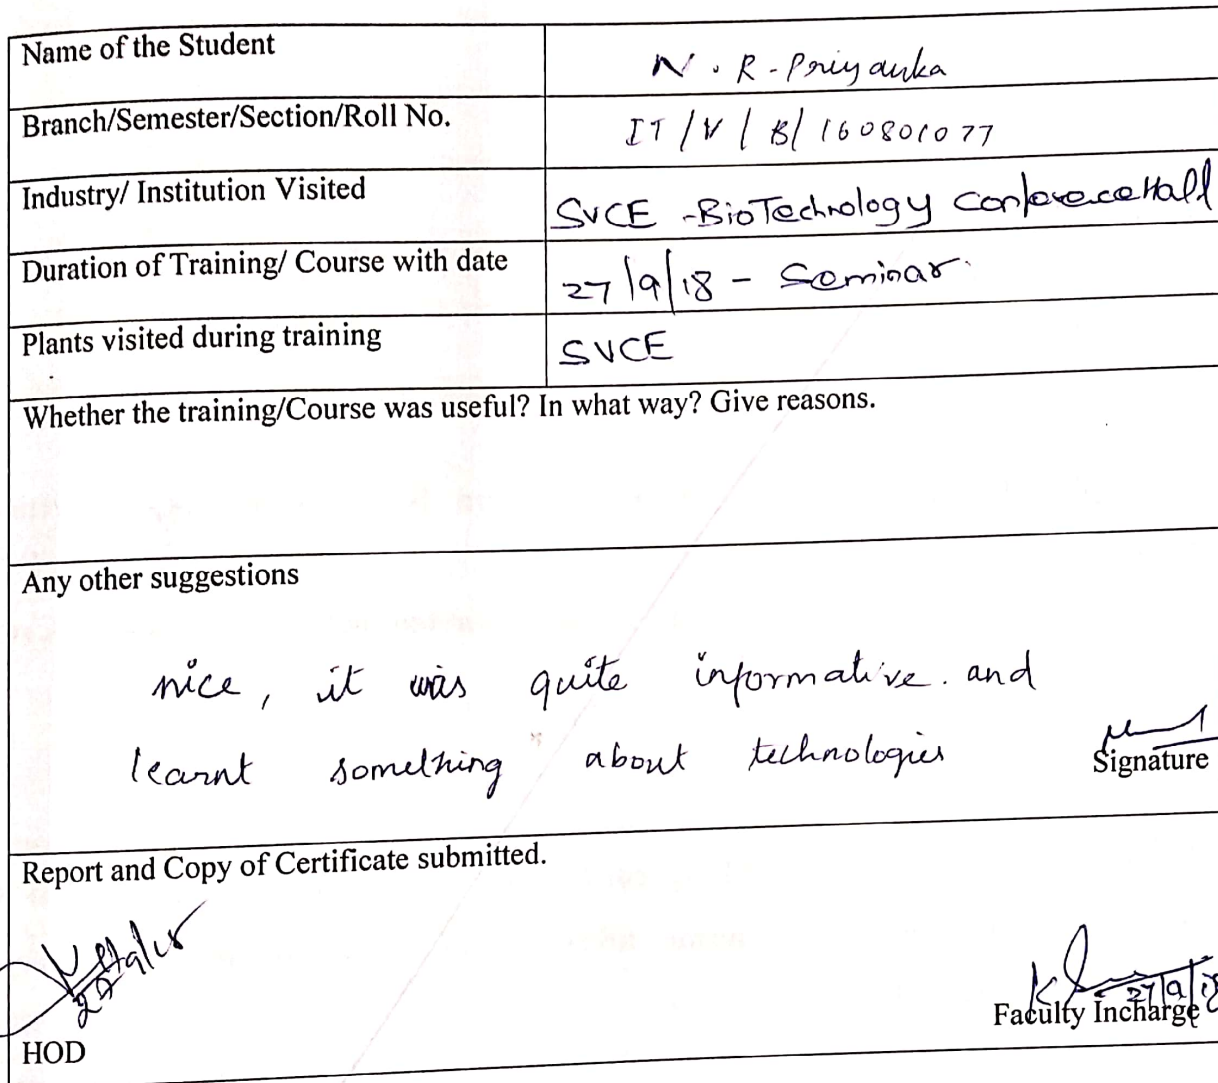 Name of the Student
N. R-Priyanka
Branch/Semester/Section/Roll No.
IT/V/B/160801077
Industry/ Institution Visited
SVCE -BioTechnology ConferenceHall
Duration of Training/ Course with date
27/9/18 - Seminar.
Plants visited during training
SVCE
Whether the training/Course was useful? In what way? Give reasons.
Any other suggestions
nice, it was quite informative. and
learnt something about technologies
Signature
Report and Copy of Certificate submitted.
27/9/18
27/9/18
Faculty Incharge
HOD